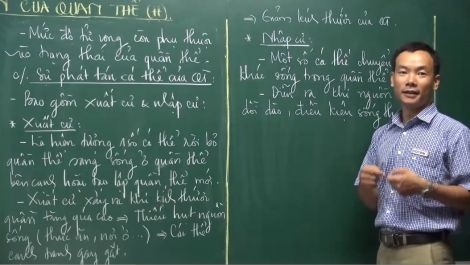 CỦA QUẦN THỂ (tt).
- Mức độ tử vong còn phụ thuộc
vào trạng thái của quần thể.
c/. Sự phát tán cá thể của QT:
- Bao gồm xuất cư & nhập cư:
* Xuất cư:
- Là hiện tượng 1 số cá thể rời bỏ
quần thể sang sống ở quần thể
bên cạnh hoặc tạo lập quần thể mới.
- Xuất cư xảy ra khi kích thước
quần thể tăng quá cao ⇒ Thiếu hụt nguồn
sống (thức ăn, nơi ở...) ⇒ Cá thể
cạnh tranh gay gắt.
⇒ Giảm kích thước của QT.
* Nhập cư:
- Một số cá thể chuyển
khác sống trong quần thể
- Diễn ra khi nguồn
dồi dào, điều kiện sống th